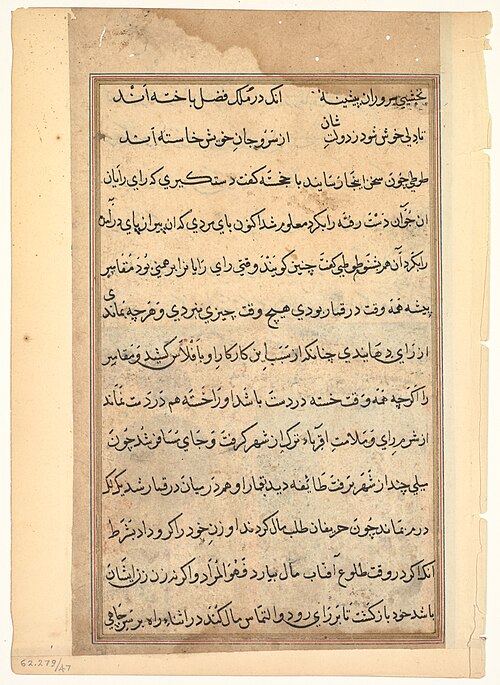 نخشبی سروران پیشینه آنک در ملک فضل باخته‌اند
تا دلی خوش شود ز دولت شان از سر و جان خویش خاسته‌اند
طوطی چون سخن اینجا رسانید با خجسته گفت دستگیری که رای رایان
ان جوان دست رفته را بکرد معلوم شد اکنون بای مردی که ان پیر از پای در آمده
را بکرد آن هم بشنو طوطی گفت چنین گویند وقتی رای رایانرا برهمنی بود مقامر
پیشه همه وقت در قمار بودی هیچ وقت چیزی نبردی و هرچه بماندی
از رای دهانیدی چنانکه از سبب این کار کار او با فلاس کشید و مقامر
را اگرچه همه وقت خسته در دست باشد او را خسته هم در دست نماند
از شرم رای و ملامت اقرباء ترک از شهر گرفت و جای مسافر شد چون
میلی چند از شهر برفت طائفه دید بقمار او هم در میان در قمار شد یکیک
درم نماند چون حریفان طلب مال کردند او زن خود را گرو داد بشرط
انکه اگر در وقت طلوع آفتاب مال بیارد فهو المراد و اگر نه زن زن ایشان
باشد خود بازگشت تا بر رای رود و التماس مال کند در اثناء راه بر سر چاهی
62.279/47